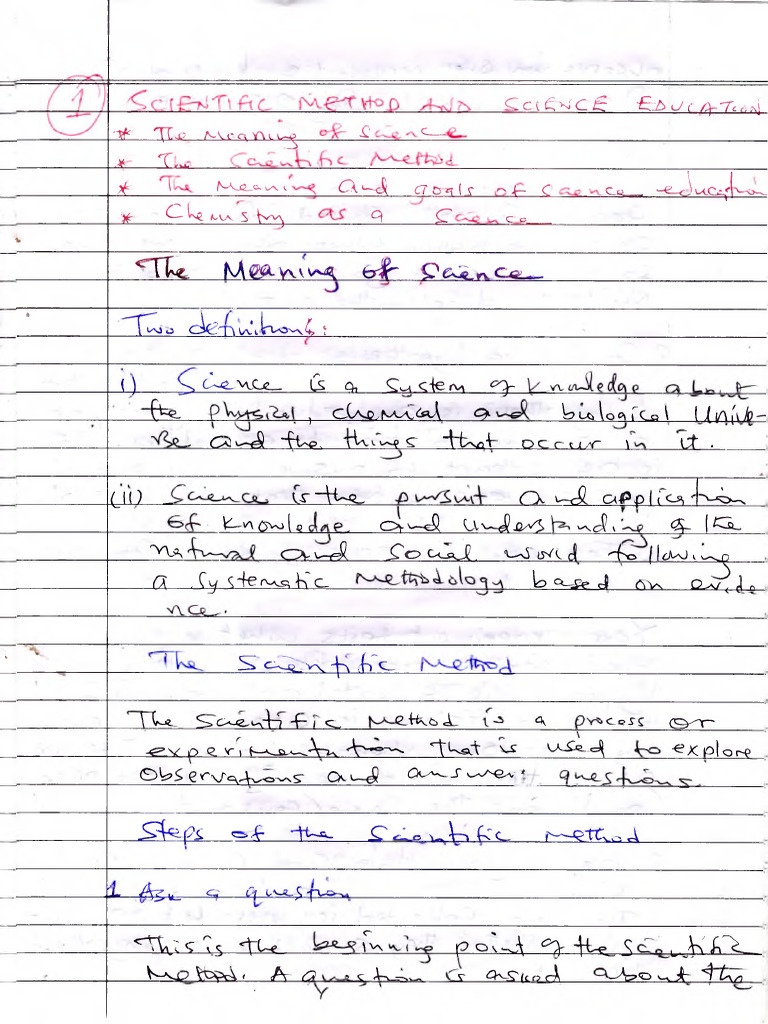 1 SCIENTIFIC METHOD AND SCIENCE EDUCATION
* The Meaning of Science
* The Scientific Method
* The Meaning and goals of science education
* Chemistry as a Science
The Meaning of Science
Two definitions:
i) Science is a system of knowledge about
the physical, chemical and biological Unive-
rse and the things that occur in it.
(ii) Science is the pursuit and application
of knowledge and understanding of the
natural and social world following
a systematic methodology based on evide
nce.
The Scientific Method
The Scientific Method is a process or
experimentation that is used to explore
observations and answer questions.
Steps of the Scientific method
1 Ask a question
This is the beginning point of the scientific
Method. A question is asked about the